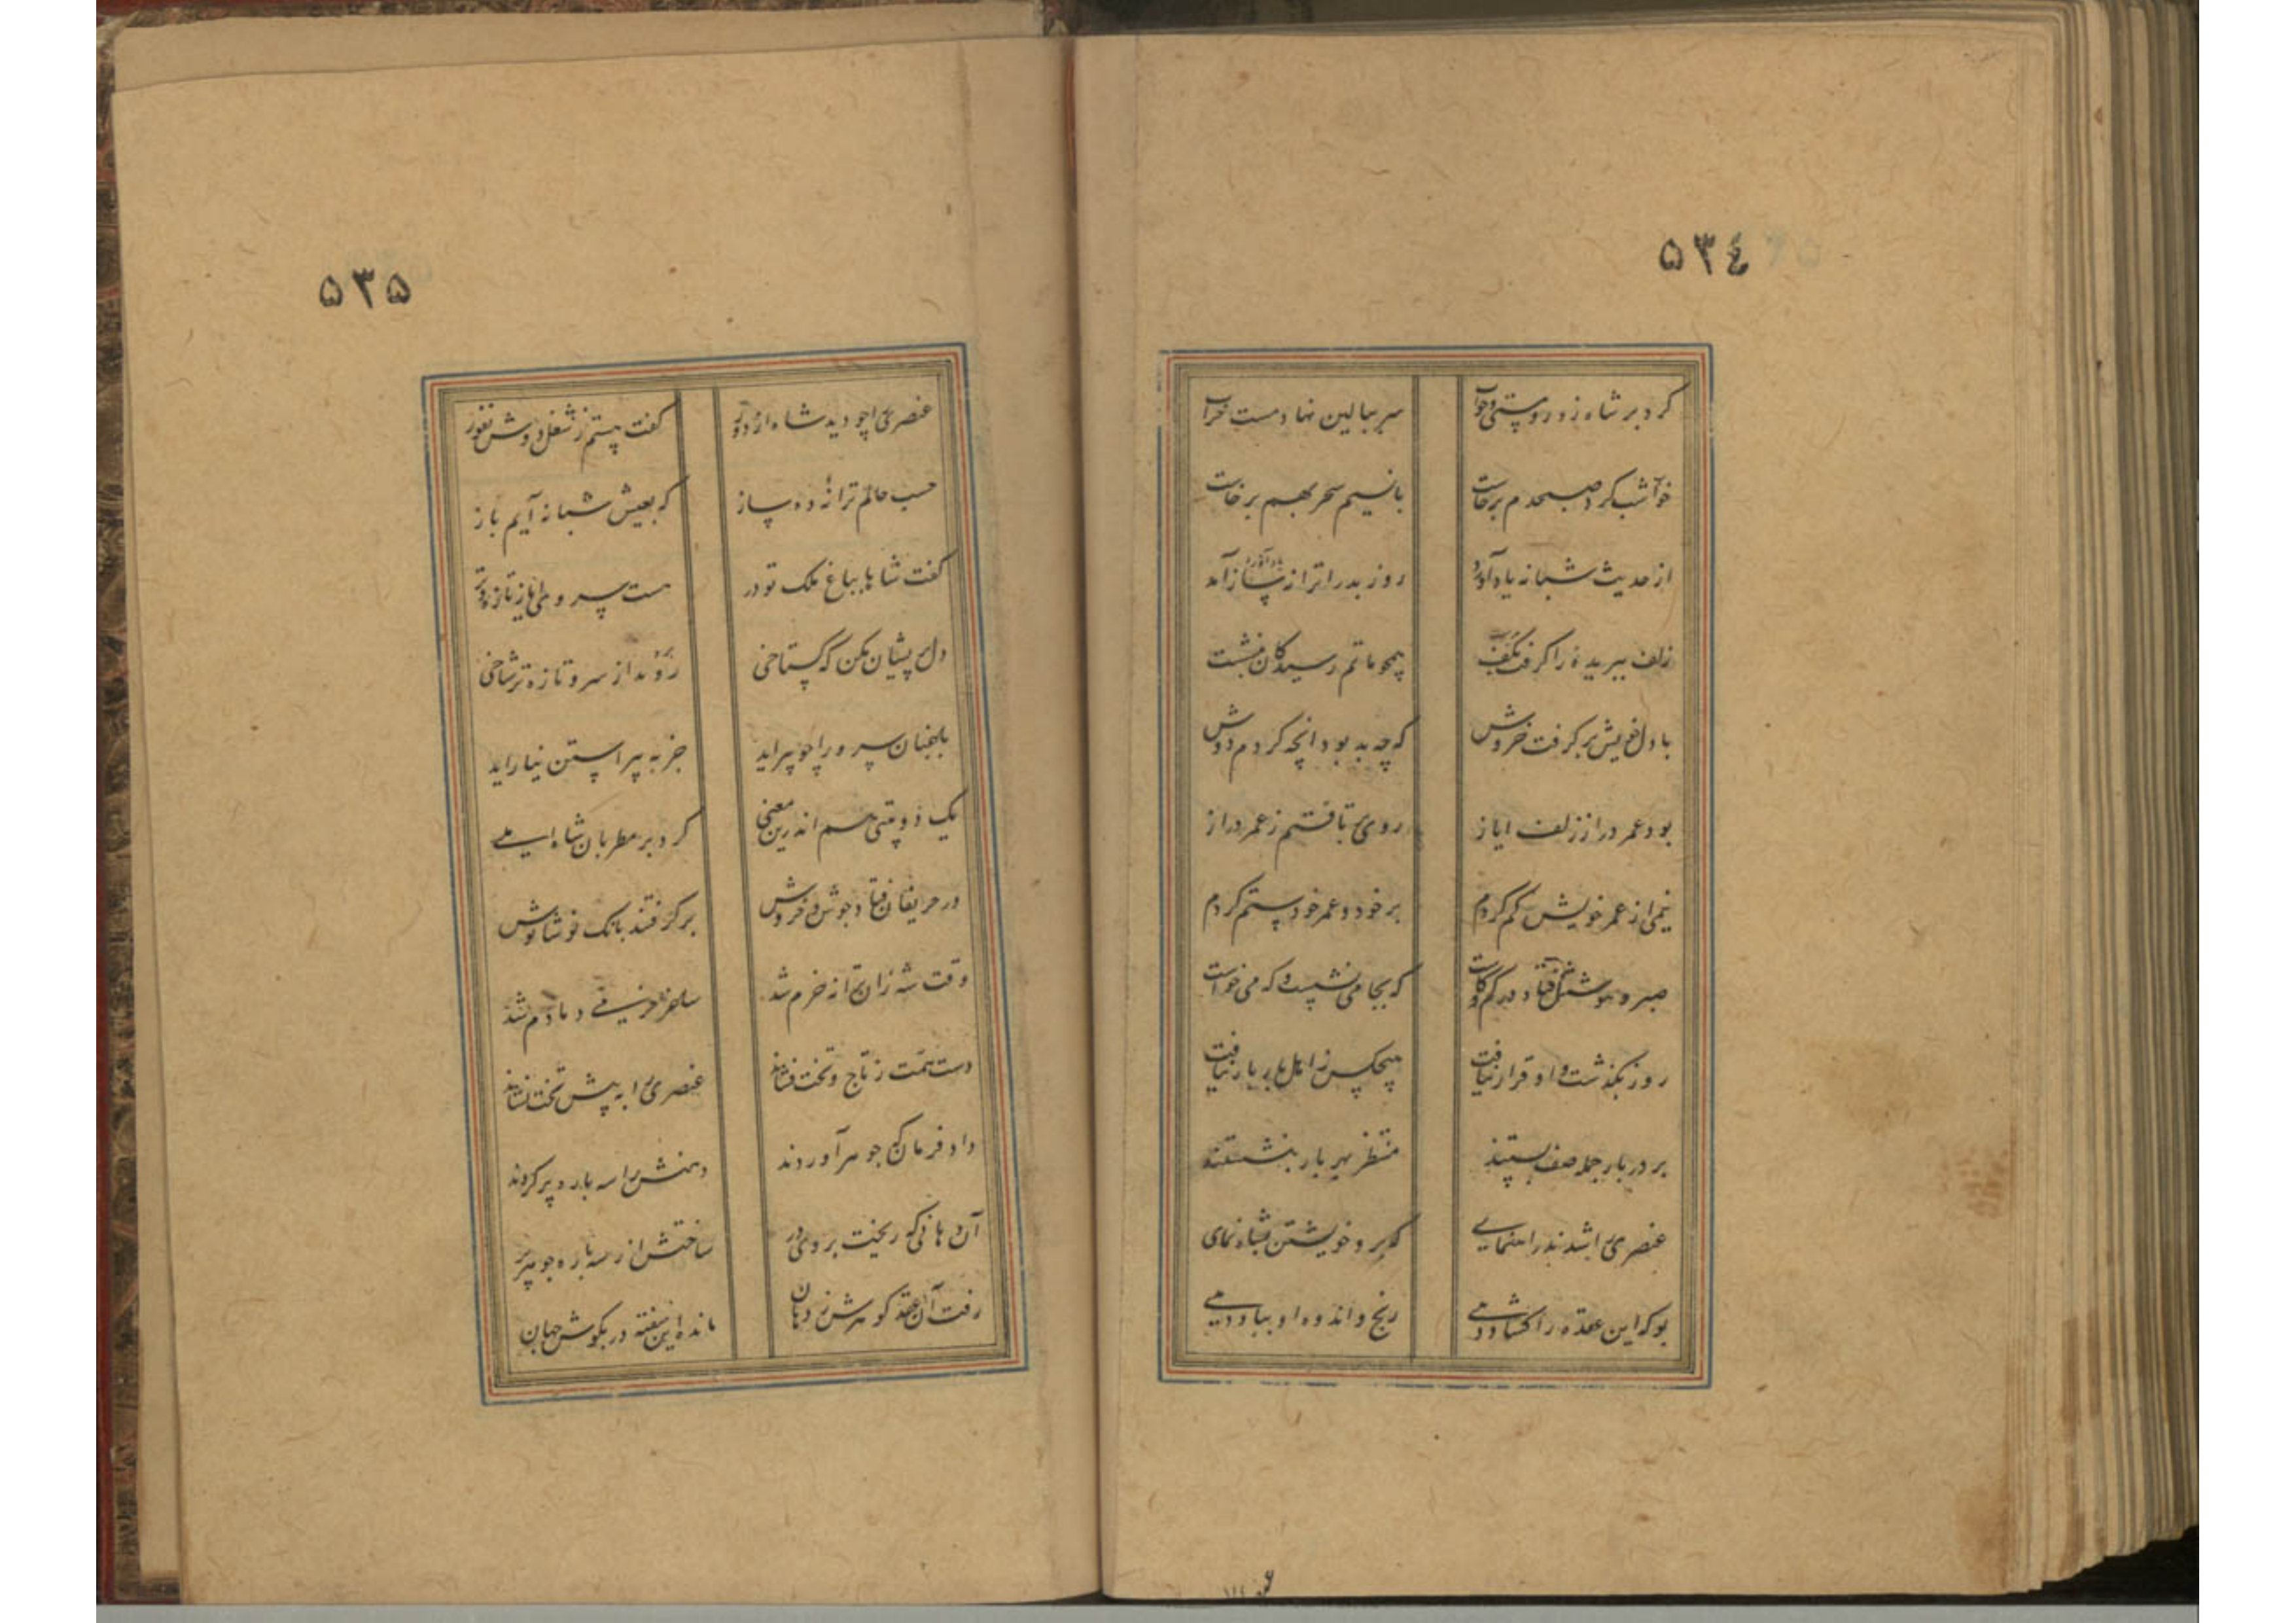 ٥٣٤
کرد بر شاه زور و مستی و خواب سر ببالین نهاد مست خراب
خواب شب کرد صبحدم برخاست با نسیم سحر بهم برخاست
از حدیث شبانه یاد آورد روز بد را تراز
زلف ببریده را گرفت بکف همچو ماتم رسیدگان بنشست
با دل خویش برگرفت خروش که چه بد بود آنچه کردم دوش
بود عمر دراز زلف ایاز روی برتافتم ز عمر دراز
نیمی از عمر خویش کم کردم بر خود و عمر خود ستم کردم
صبر و هوشش فتاد در کم و کاست که بجا می نشست و که می خواست
روز بگذشت و او قرار نیافت هیچکس ز اهل بار بار نیافت
بر در بار جمله صف بستند منتظر بهر بار بنشستند
عنصری را شدند راهنمای که برو خویشتن بشاه نمای
بو که این عقده را گشاد دهی رنج و اندوه او بباد دهی
٥٣٥
عنصری را چو دید شاه از دور گفت هستم ز شغل دوش نفور
حسب حالم ترانهٔ ده ساز که بعیش شبانه آیم باز
گفت شاها بباغ ملک تو در هست سروی ایاز تازه و تر
دل پریشان مکن که گستاخی ربود از سرو تازه تر شاخی
باغبان سرو را چو پیراید جز به پیراستن نیاراید
یک دو بیتی هم اندرین معنی کرد بر مطربان شاه املی
در حریفان فتاد جوش و خروش برگرفتند بانگ نوشانوش
وقت شه زان ترانه خرم شد ساغر می دمادم شد
دست همت ز تاج و تخت فشاند عنصری را به پیش تخت نشاند
داد فرمان که جوهر آوردند دهنش را سه بار پر کردند
آن دهانی که ریخت بر وی در ساختش از سه باره جوهر پر
رفت آن عقد گوهرش ز دهان مانده این سفته در بگوش جهان